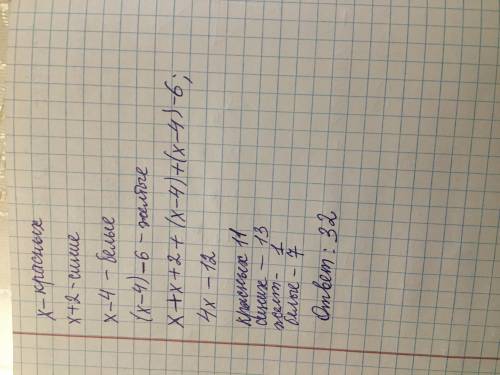 x - красных
x + 2 - синие
x - 4 - белые
(x - 4) - 6 - желтые
x + x + 2 + (x - 4) + (x - 4) - 6;
4x - 12
красных 11
синих - 13
желт - 1
белые - 7
Ответ: 32